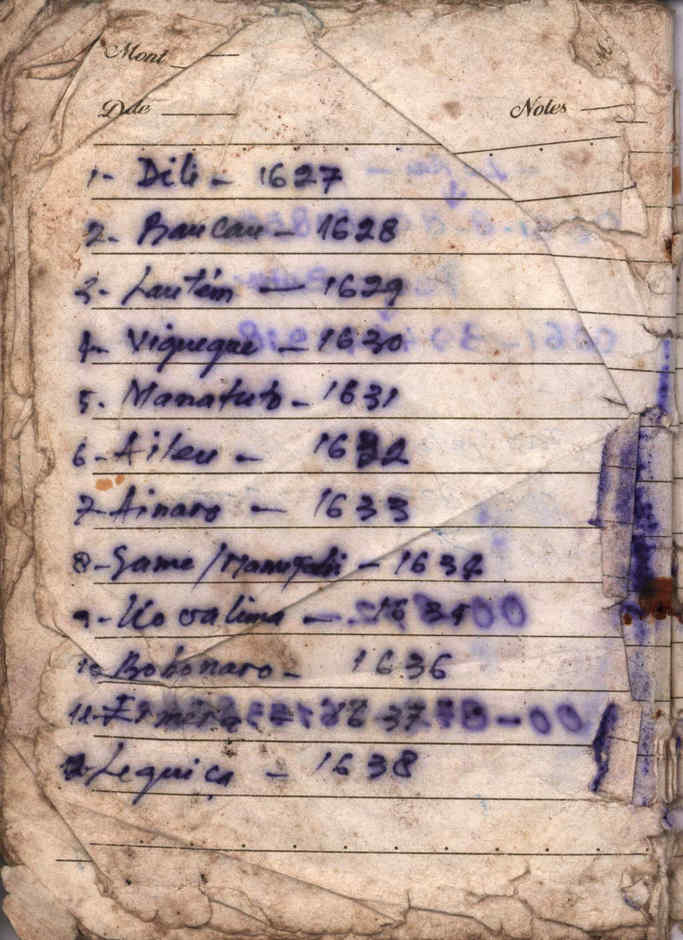 Mont
Date
Notes
1- Dili - 1627
2- Baucau - 1628
3- Lautém - 1629
4- Viqueque - 1630
5- Manatuto - 1631
6- Aileu - 1632
7- Ainaro - 1633
8- Same / Manufahi - 1634
9- Ko valima - 1635
10- Bobonaro - 1636
11- Ermera - 1637
12- Lequiça - 1638